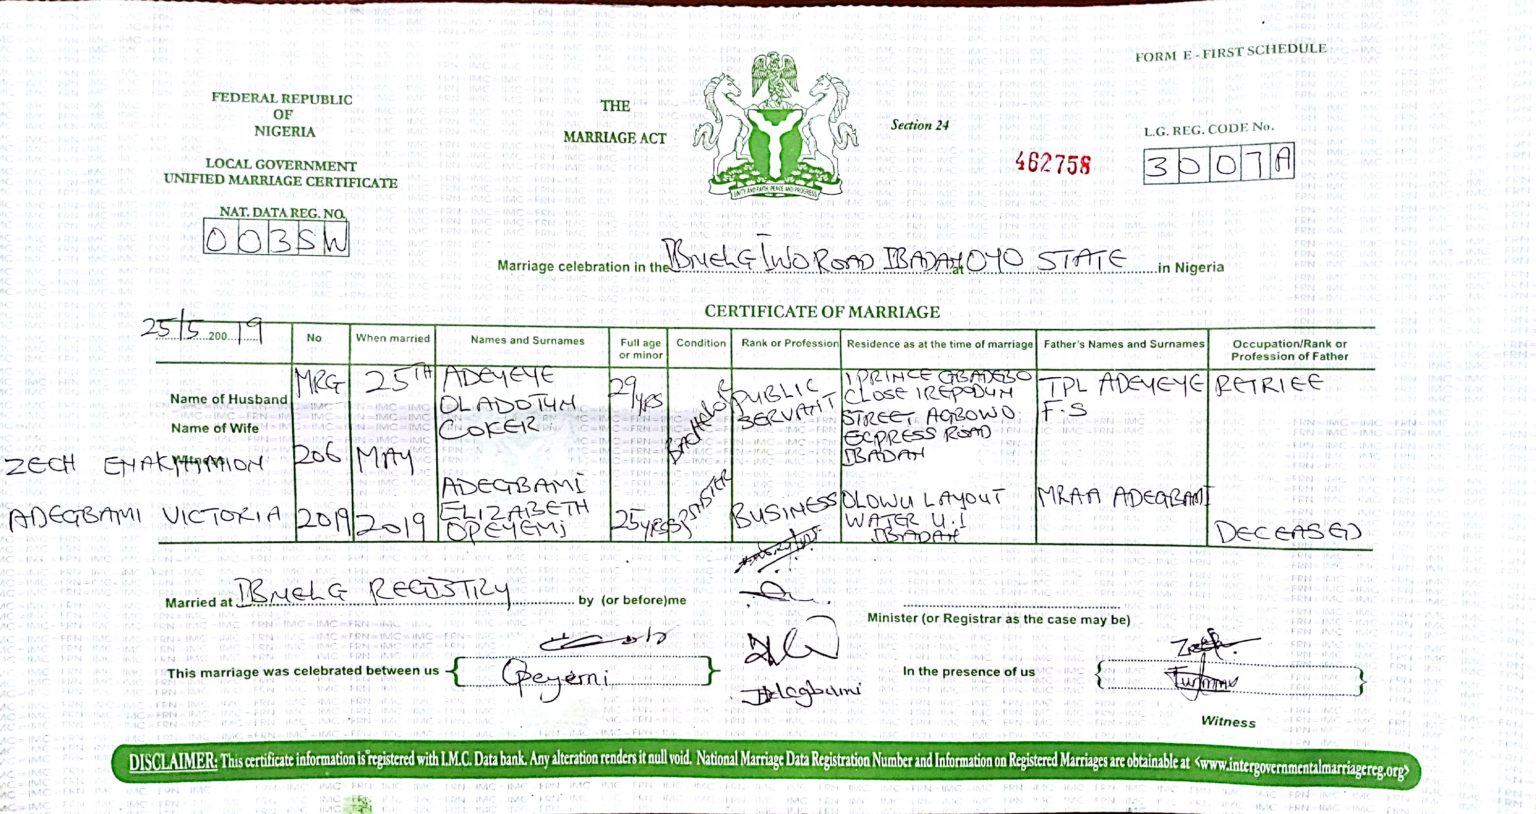 FORM E - FIRST SCHEDULE
FEDERAL REPUBLIC
OF
NIGERIA
LOCAL GOVERNMENT
UNIFIED MARRIAGE CERTIFICATE
NAT. DATA REG. NO.
003SW
THE
MARRIAGE ACT
UNITY AND FAITH, PEACE AND PROGRESS
Section 24
462758
L.G. REG. CODE No.
3007A
Marriage celebration in the IBNELG IWO ROAD IBADAN at OYO STATE in Nigeria
CERTIFICATE OF MARRIAGE
25/5 200 19
No
When married
Names and Surnames
Full age or minor
Condition
Rank or Profession
Residence as at the time of marriage
Father's Names and Surnames
Occupation/Rank or Profession of Father
Name of Husband
MRG
25TH
ADEYEYE
OLADOTUN
COKER
29/yrs
BACHELOR
PUBLIC
SERVANT
1 PRINCE GBADEBO
CLOSE IREPODUN
STREET AGBOWO
ECPRESS ROAD
IBADAN
TPL ADEYEYE
F.S
RETRIEE
Name of Wife
Witness
206
MAY
ZECH
ADEGBAMI VICTORIA
2019
2019
ADEGBAMI
ELIZABETH
OPEYEMI
25yrs
SPINSTER
BUSINESS
OLOWU LAYOUT
WATER U.I
IBADAN
MRAA ADEGBAMI
DECEASED
Married at IBNELG REGISTRY by (or before) me
Minister (or Registrar as the case may be)
This marriage was celebrated between us
Opeyemi
Adegbami
In the presence of us
Witness
DISCLAIMER: This certificate information is registered with I.M.C. Data bank. Any alteration renders it null void. National Marriage Data Registration Number and Information on Registered Marriages are obtainable at <www.intergovernmentalmarriagereg.org>